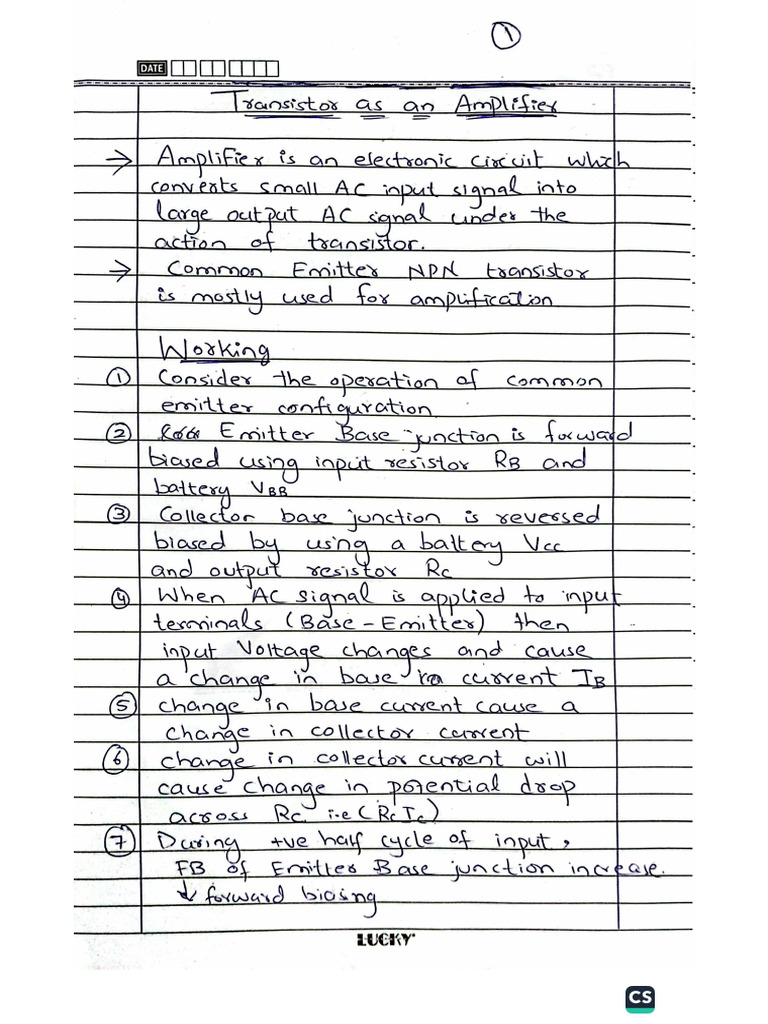 1
DATE
Transistor as an Amplifier
→ Amplifier is an electronic circuit which
converts small AC input signal into
large output AC signal under the
action of transistor.
→ Common Emitter NPN transistor
is mostly used for amplification
Working
① Consider the operation of common
emitter configuration
② Emitter Base junction is forward
biased using input resistor RB and
battery VBB
③ Collector base junction is reversed
biased by using a battery Vcc
and output resistor Rc
④ When AC signal is applied to input
terminals (Base-Emitter) then
input Voltage changes and cause
a change in base current IB
⑤ change in base current cause a
change in collector current
⑥ change in collector current will
cause change in potential drop
across Rc i.e (RcIc)
⑦ During +ve half cycle of input,
FB of Emitter Base junction increase.
↓ forward biasing
LUCKY
CS